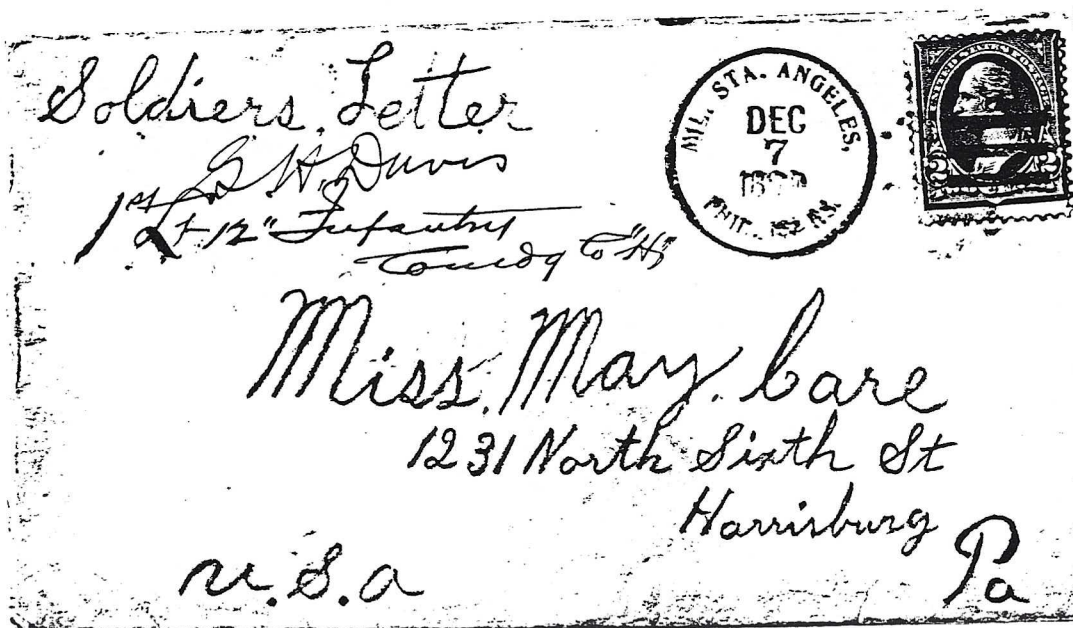 Soldiers, Letter
G H, Davis
1st Lt 12" Infantry
Comdg Co "H"
MIL. STA. ANGELES,
DEC
7
PHIL. ISLANDS.
UNITED STATES POSTAGE
2 2
Miss. May. Care
1231 North Sixth St
Harrisburg
Pa
U.S.a